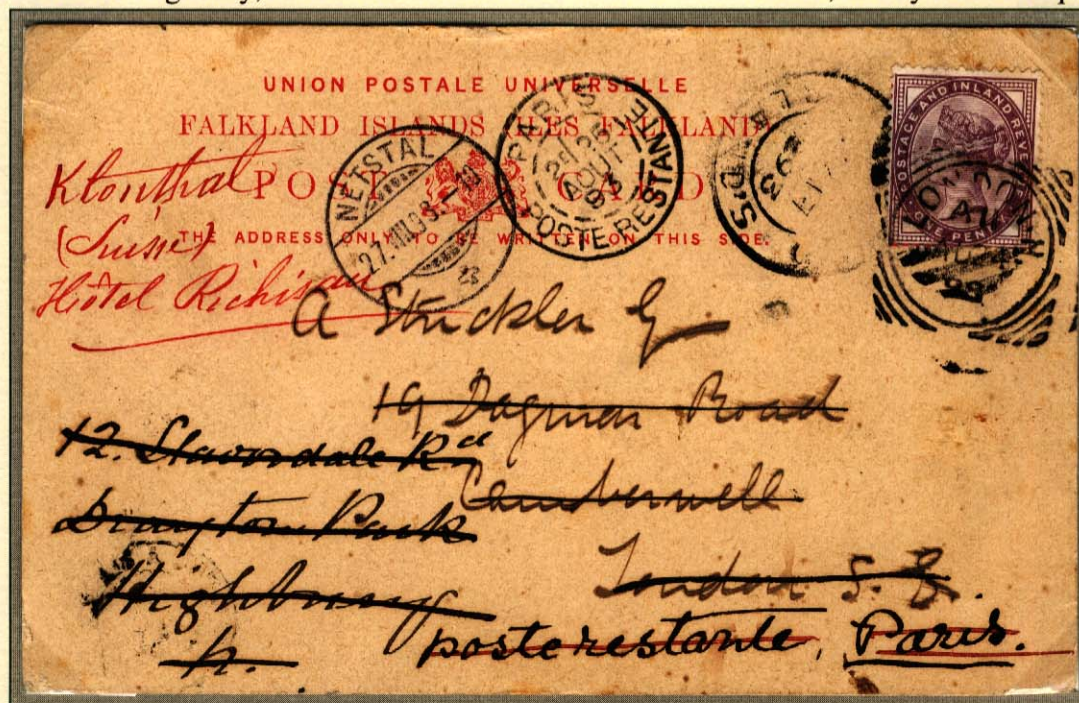 UNION POSTALE UNIVERSELLE
FALKLAND ISLANDS (ILES FALKLAND)
POST CARD
THE ADDRESS ONLY TO BE WRITTEN ON THIS SIDE.
NETSTAL
27.VIII.93.-10
PARIS
AOUT
93
POSTE RESTANTE
POSTAGE AND INLAND REVENUE
ONE PENNY
LONDON
Klönthal
(Suisse)
Hôtel Richisau
A Strickler
19 Dagmar Road
Camberwell
London S.E.
12. Stavordale Rd
Drayton Park
Highbury
N.
poste restante, Paris.